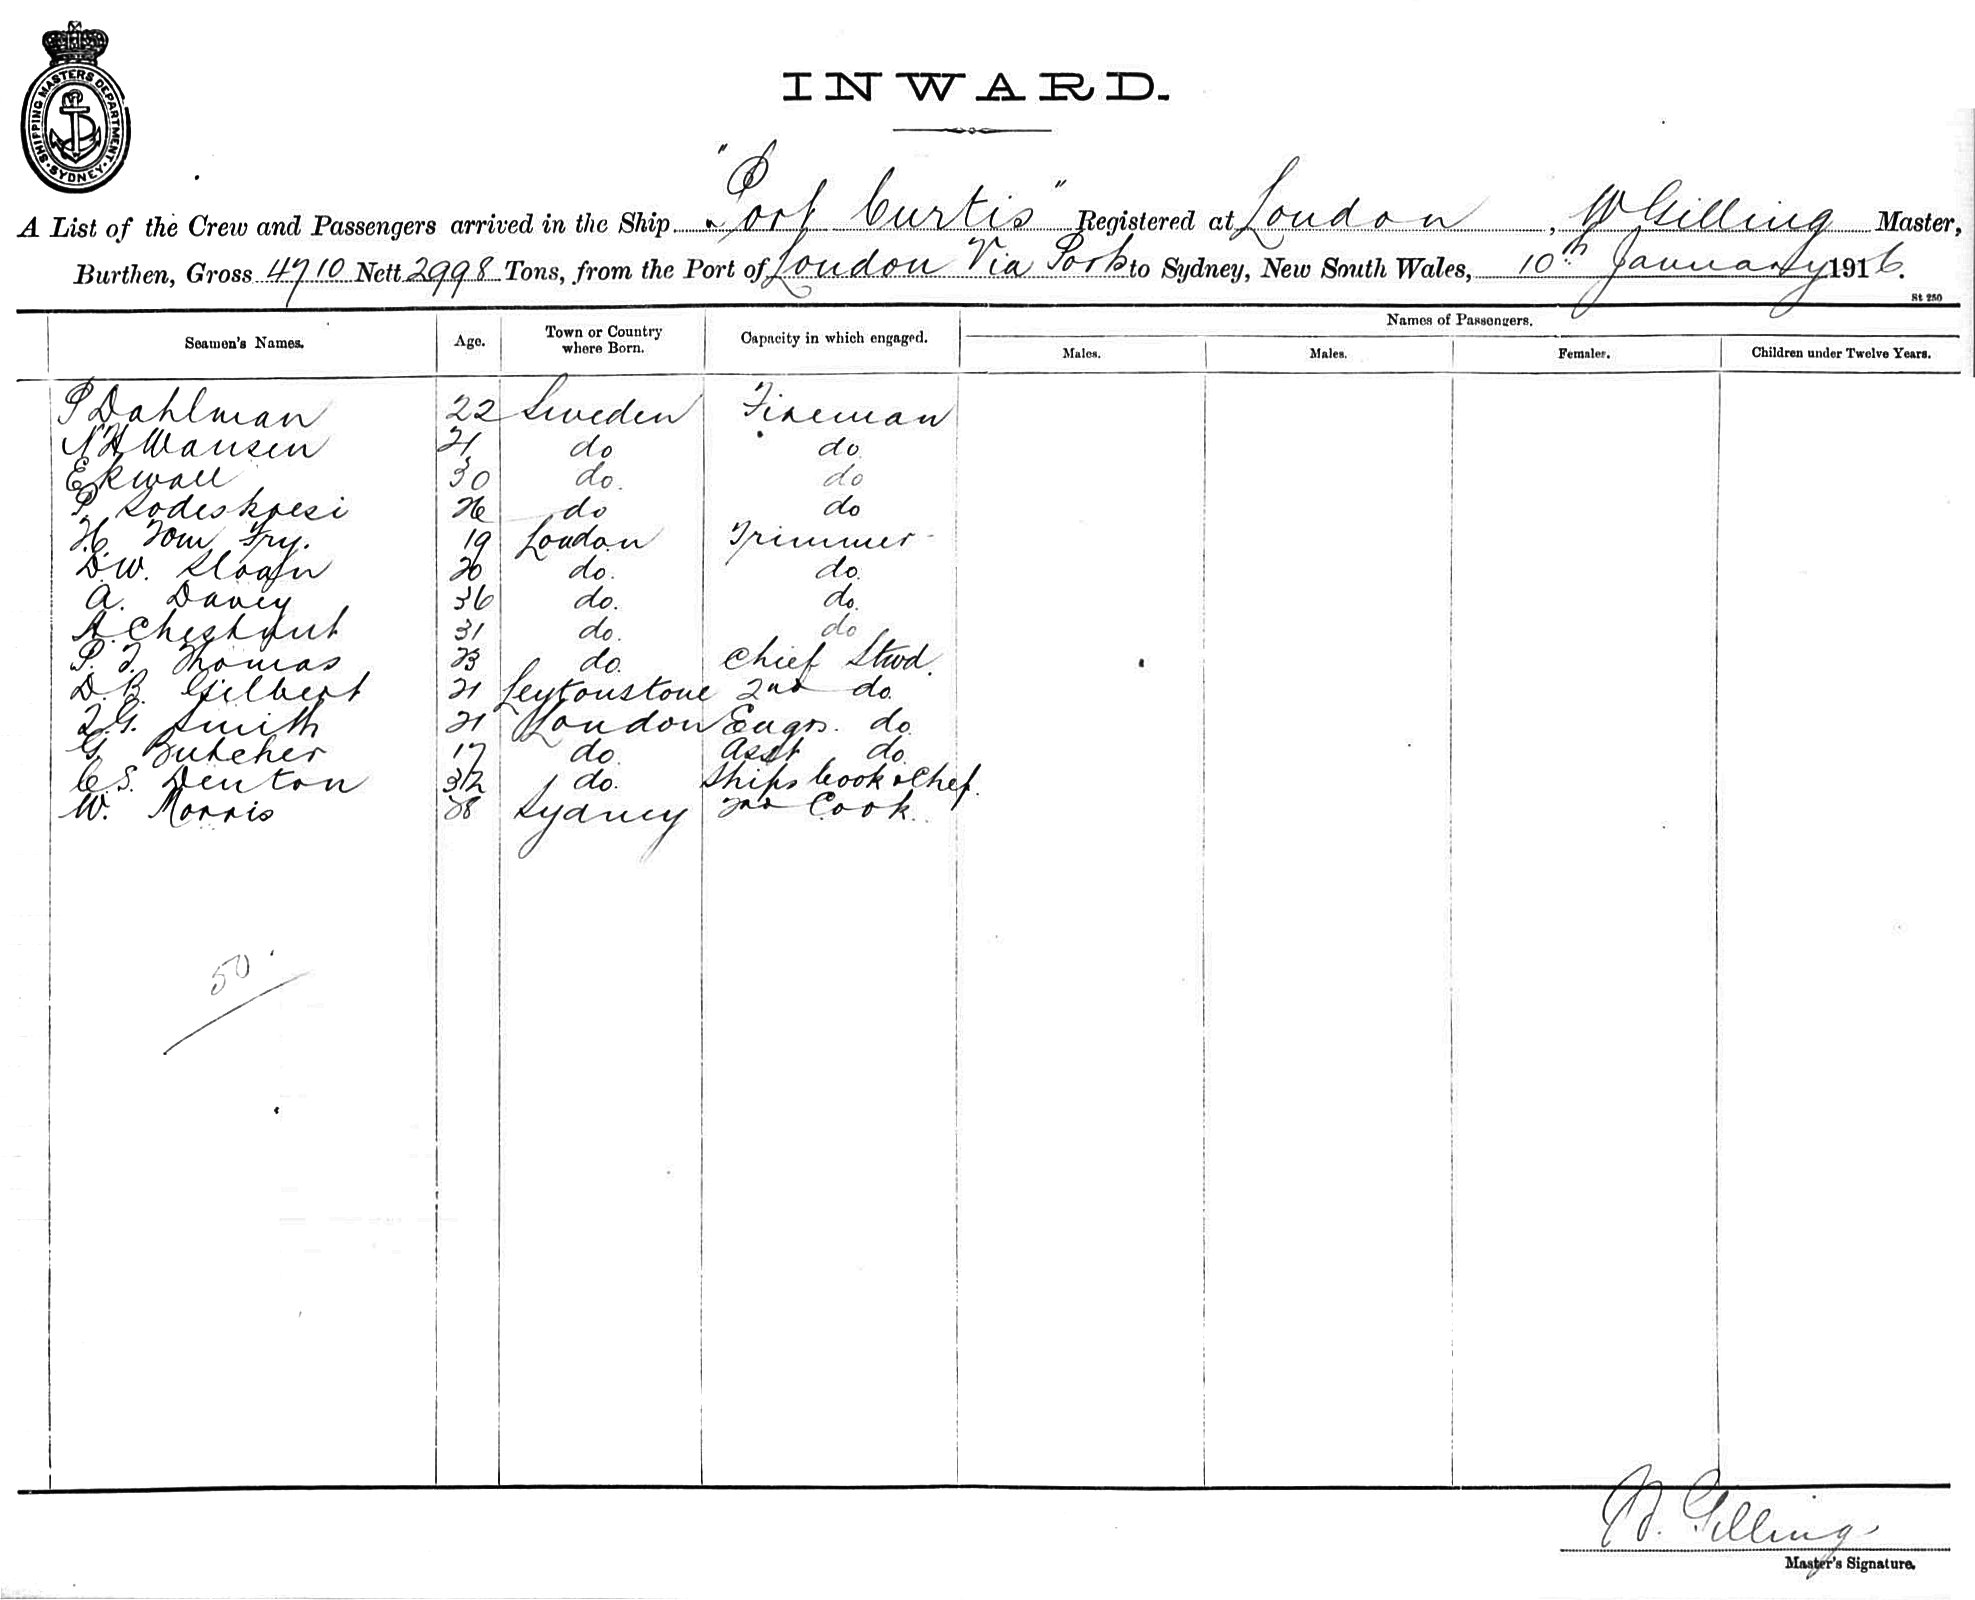 SHIPPING MASTERS DEPARTMENT. SYDNEY
INWARD.
A List of the Crew and Passengers arrived in the Ship "Port Curtis" Registered at London, W Gilling Master,
Burthen, Gross 4710 Nett 2998 Tons, from the Port of London Via Ports to Sydney, New South Wales, 10th January 1916.
St 250
Seamen's Names. Age. Town or Country where Born. Capacity in which engaged. Names of Passengers.
Males. Males. Females. Children under Twelve Years.
P Dahlman 22 Sweden Fireman
21 do do
Ekwall 30 do. do
P. 26 do do
H. Tom Fry. 19 London Trimmer
D.W. Sloan 20 do. do.
A. Davey 36 do. do.
A. Chestnut 31 do. do
P. T. Thomas 23 do. Chief Stwd.
D. B. Gilbert 21 Leytonstone 2nd do.
T.G. Smith 21 London Engrs. do.
G. Butcher 17 do. Asst do.
C.S. Denton 32 do. Ships Cook & Chef.
W. Morris 28 Sydney 2nd Cook.
50.
W. Gilling
Master's Signature.